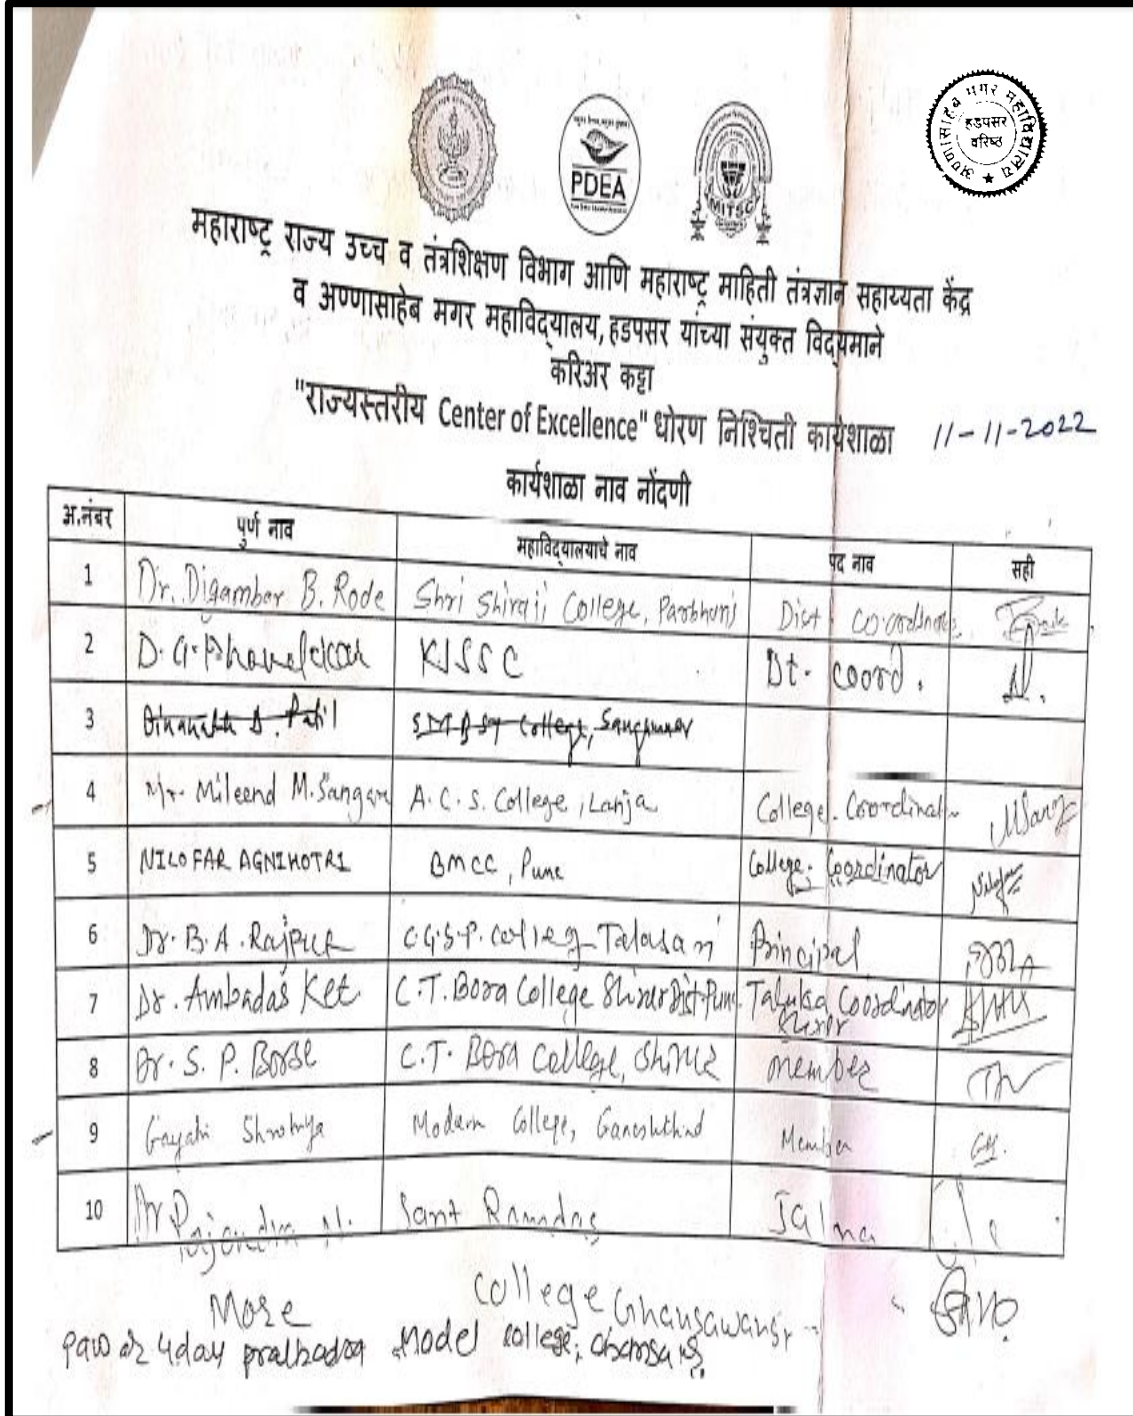 PDEA
MITSC
अण्णासाहेब मगर महाविद्यालय
हडपसर
वरिष्ठ
महाराष्ट्र राज्य उच्च व तंत्रशिक्षण विभाग आणि महाराष्ट्र माहिती तंत्रज्ञान सहाय्यता केंद्र
व अण्णासाहेब मगर महाविद्यालय, हडपसर यांच्या संयुक्त विद्यमाने
करिअर कट्टा
"राज्यस्तरीय Center of Excellence" धोरण निश्चिती कार्यशाळा 11-11-2022
कार्यशाळा नाव नोंदणी
अ.नंबर पुर्ण नाव महाविद्यालयाचे नाव पद नाव सही
1 Dr. Digambar B. Rode Shri Shivaji College, Parbhani Dist Coordinator
2 D. G. KJSSC Dt. coord.
3 Patil College, Sangamner
4 Mr. Mileend M. Sangare A. C. S. College, Lanja College. Coordinator
5 NILOFAR AGNIHOTRI BMCC, Pune College. Coordinator
6 Dr. B. A. Rajput C.G.S.P. College Talasari Principal
7 Dr. Ambadas Ket C.T. Bora College Shirur Dist. Pune Taluka Coordinator
Shirur
8 Dr. S. P. Borse C.T. Bora College, Shirur member
9 Gayatri Modern College, Ganeshkhind Member
10 Dr Rajendra N. Sant Ramdas Jalna
More College Ghansawangi
Pawar Uday Pralhadrao Model college,